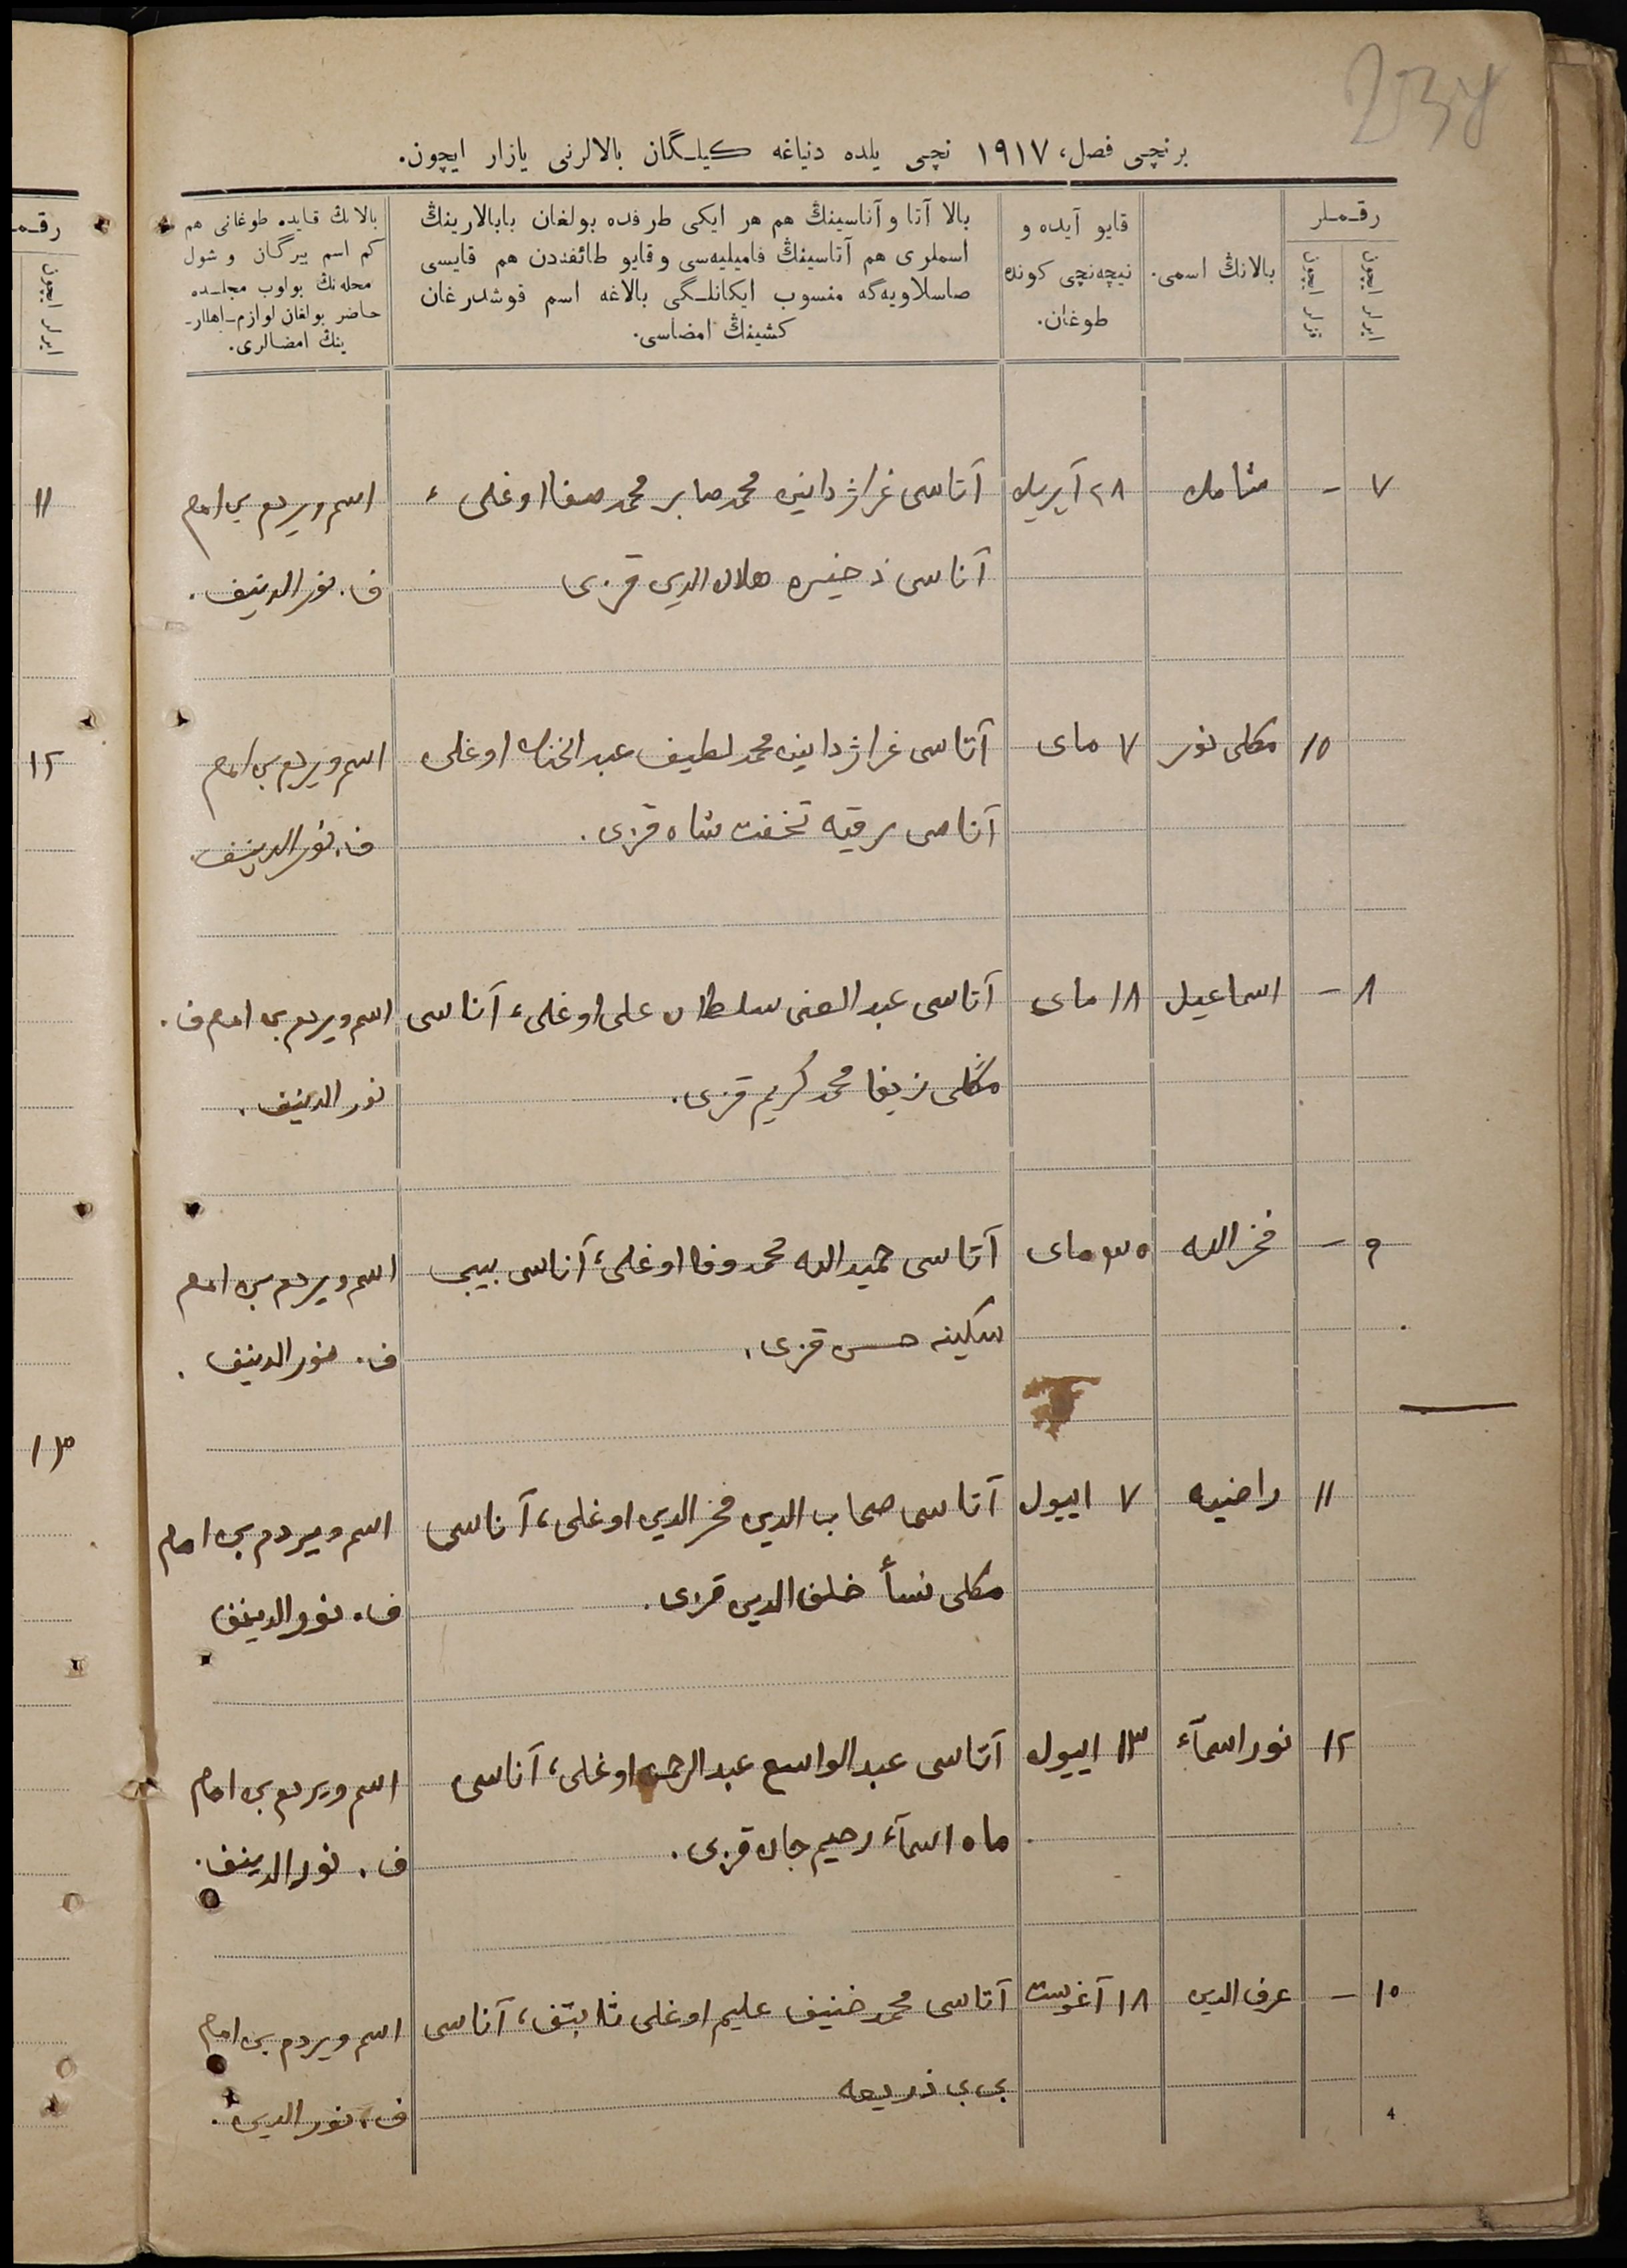 234
برنچی فصل، ١٩١٧ نچی یلده دنیاغه کیلـگان بالالرنی یازار ایچون.
رقـملر
ایرلر ایچون
قزلر ایچون
بالانڭ اسمی.
قایو آیده و
نیچه‌نچی کونده
طوغان.
بالا آتا و آناسینڭ هم هر ایکی طرفده بولغان بابالارینڭ
اسملری هم آتاسینڭ فامیلیه‌سی و قایو طائفه‌دن هم قایسی
صاسلاویه‌گه منسوب ایکانلـگی بالاغه اسم قوشدرغان
کشینڭ امضاسی.
بالانڭ قایده طوغانی هم
کم اسم بیرگان و شول
محله‌نڭ بولوب مجلسده
حاضر بولغان لوازم اهللر-
ینڭ امضالری.
٧ - شامل ٢٨ آپریل آتاسی غراژدانین محمد صابر محمد صفا اوغلی،
آناسی ذخیره هلال الدین قزی
اسم ویردم بن امام
ف. نورالدینف.
١٠ مکلی نور ٧ مای آتاسی غراژدانین محمد لطیف عبد الحنان اوغلی
آناسی رقیه تخفت شاه قزی.
اسم ویردم بن امام
ف. نورالدینف
٨ - اسماعیل ١٨ مای آتاسی عبد الغنی سلطان علی اوغلی، آناسی
مڭلی زیفا محمد کریم قزی.
اسم ویردم بن امام ف.
نورالدینف.
٩ - فخر الله ٣٠ مای آتاسی حمید الله محمد وفا اوغلی، آناسی بیبی
سکینه حسن قزی.
اسم ویردم بن امام
ف. نورالدینف.
١١ راضیه ٧ اییول آتاسی صحاب الدین فخر الدین اوغلی، آناسی
مکلی نسأ خلف الدین قزی.
اسم ویردم بن امام
ف. نورالدینف
١٢ نور اسمآء ١٣ اییول آتاسی عبد الواسع عبد الرحمن اوغلی، آناسی
ماه اسمآء رحیم جان قزی.
اسم ویردم بن امام
ف. نورالدینف.
١٠ - عرف الدین ١٨ آغوست آتاسی محمد حنیف علیم اوغلی ثابتف، آناسی
بی بی ذریعه
اسم ویردم بن امام
ف. نورالدین.
4
رقـمـ
ایرلر ایچون
١١
١٢
١٣